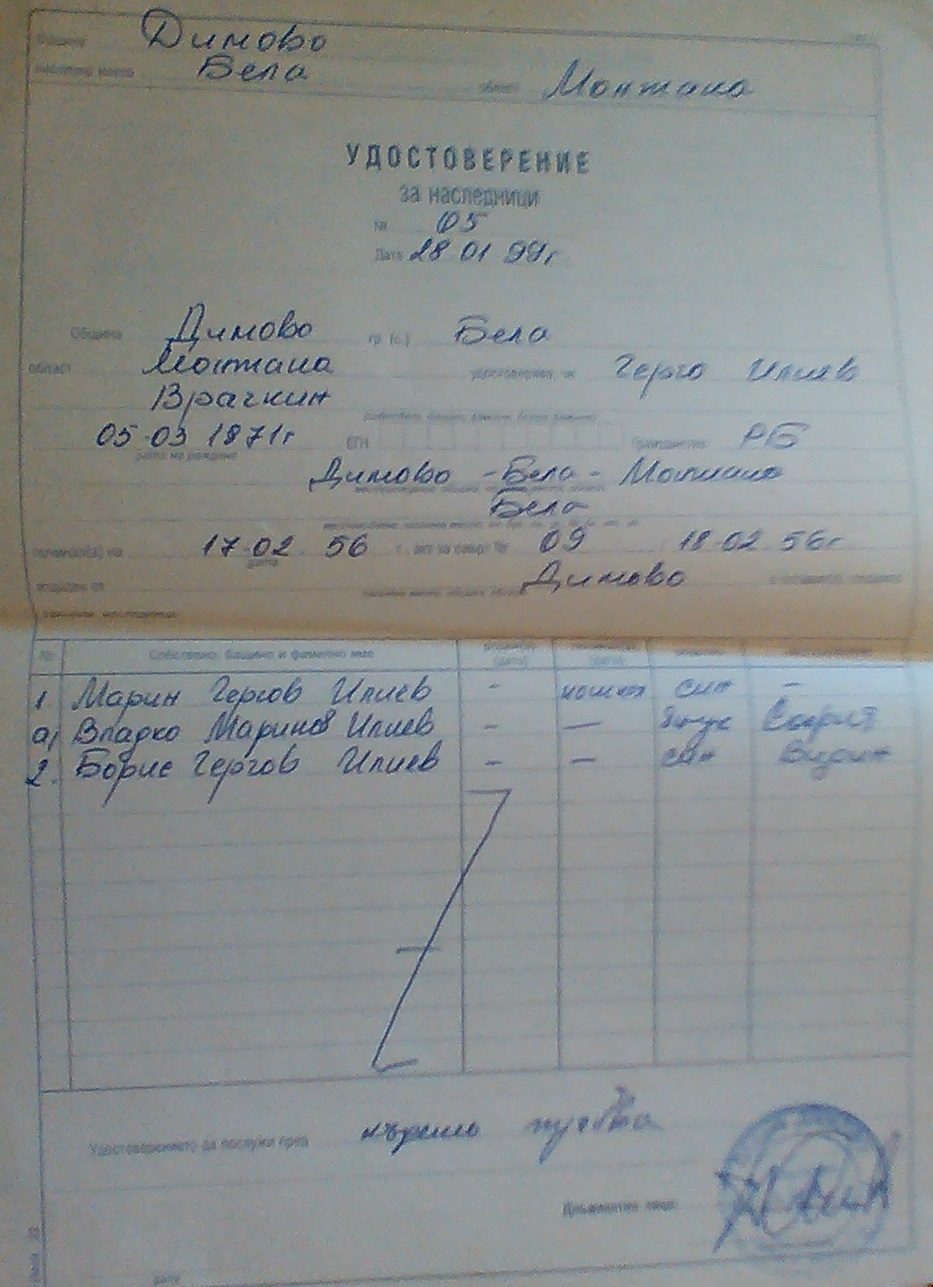 Община Димово
населено място Бела област Монтана
УДОСТОВЕРЕНИЕ
за наследници
№ 05
Дата 28.01 99г
Община Димово гр. (с.) Бела
област Монтана удостоверява, че Герго Илиев
Врачкин
(собствено, бащино, фамилно, белези фамилно)
05-03 1871г ЕГН Гражданство РБ
дата на раждане
Димово - Бела - Монтана
Бела
починал(а) на 17-02 56 г., акт за смърт № 09 18-02 56г
дата
издаден от Димово
законни наследници:
№ Собствено, бащино и фамилно име (дата) (дата)
1. Марин Гергов Илиев - син -
а) Владко Маринов Илиев - — внук София
2. Борис Гергов Илиев - — син Видин
Удостоверението да послужи пред
Длъжностно лице:
дата